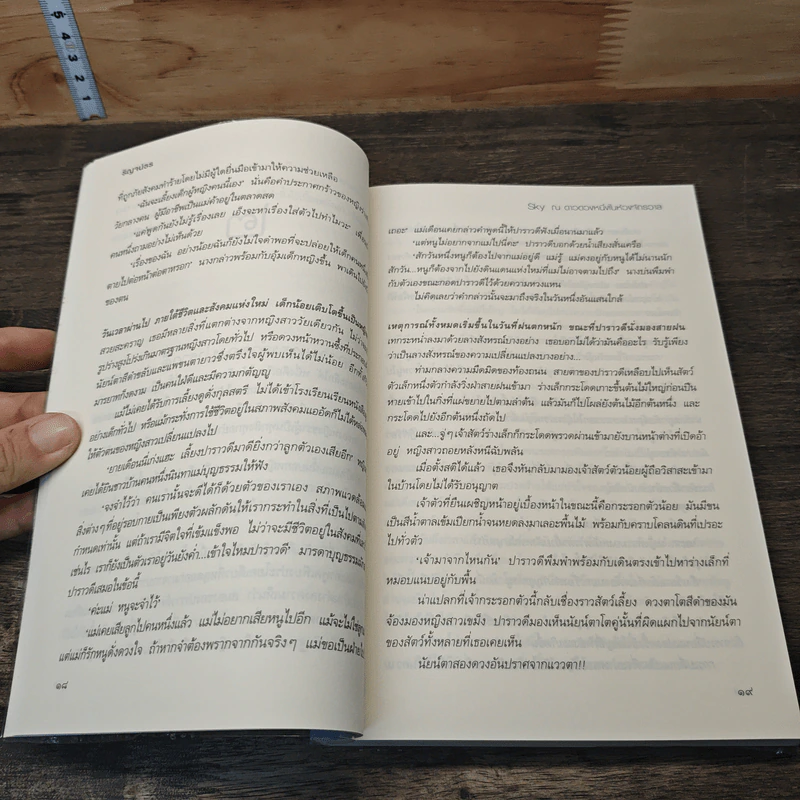 5
4
3
2
1
ธัญจปรส
ที่ถูกภัยสังคมทำร้ายโดยไม่มีผู้ใดยื่นมือเข้ามาให้ความช่วยเหลือ
'ฉันจะเลี้ยงเด็กผู้หญิงคนนี้เอง' นั่นคือคำประกาศกร้าวของหญิง
วัยกลางคน ผู้มีอาชีพเป็นแม่ค้าอยู่ในตลาดสด
'แต่พูดกันยังไม่รู้เรื่องเลย เอ็งจะหาเรื่องใส่ตัวไปทำไมวะ
คนหนึ่งถามอย่างไม่เห็นด้วย
'เรื่องของฉัน อย่างน้อยฉันก็ยังไม่ใจดำพอที่จะปล่อยให้เด็ก
ตายไปต่อหน้าต่อตาหรอก' นางกล่าวพร้อมกับอุ้มเด็กหญิงขึ้น พาเดิน
ของตน
วันเวลาผ่านไป ภายใต้ชีวิตและสังคมแห่งใหม่ เด็กน้อยเติบโตขึ้น
สวยสะคราญ เธอมีหลายสิ่งที่แตกต่างจากหญิงสาววัยเดียวกัน ไม่ว่า
รูปร่างสูงโปร่งเกินมาตรฐานหญิงสาวโดยทั่วไป หรือดวงหน้าหวานซึ้งที่
นัยน์ตาสีดำขลับและแพขนตายาวซึ่งตรึงใจผู้พบเห็นได้ไม่น้อย อีกทั้ง
มารยาทก็งดงาม เป็นคนใฝ่ดีและมีความกตัญญู
แม้ไม่เคยได้รับการเลี้ยงดูดั่งกุลสตรี ไม่ได้เข้าโรงเรียนเรียนหนังสือ
อย่างเด็กทั่วไป หรือแม้กระทั่งการใช้ชีวิตอยู่ในสภาพสังคมแออัดก็ไม่ได้
ให้ตัวตนของหญิงสาวเปลี่ยนแปลงไป
'ยายเดือนนี่เก่งแฮะ เลี้ยงปาราวดีมาดียิ่งกว่าลูกตัวเองเสียอีก'
เคยได้ยินชาวบ้านคนหนึ่งนินทาแม่บุญธรรมให้ฟัง
'จงจำไว้ว่า คนเรานั้นจะดีได้ก็ด้วยตัวของเราเอง สภาพแวดล้อม
สิ่งต่างๆ ที่อยู่รอบกายเป็นเพียงตัวผลักดันให้เรากระทำในสิ่งที่เป็นไปตาม
กำหนดเท่านั้น แต่ถ้าเรามีจิตใจที่เข้มแข็งพอ ไม่ว่าจะมีชีวิตอยู่ในสังคม
เช่นไร เราก็ยังเป็นตัวเราอยู่วันยังค่ำ...เข้าใจไหมปาราวดี' มารดาบุญธรรม
ปาราวดีเสมอในข้อนี้
'ค่ะแม่ หนูจะจำไว้'
'แม่เคยเสียลูกไปคนหนึ่งแล้ว แม่ไม่อยากเสียหนูไปอีก แม้จะไม่ใช่
แต่แม่ก็รักหนูดั่งดวงใจ ถ้าหากจำต้องพรากจากกันจริงๆ แม่ขอเป็นฝ่าย
๑๘
Sky ณ ดาวดวงหนึ่งในห้วงจักรวาล
เถอะ' แม่เดือนเคยกล่าวคำพูดนี้ให้ปาราวดีฟังเมื่อนานมาแล้ว
'แต่หนูไม่อยากจากแม่ไปนี่คะ' ปาราวดีบอกด้วยน้ำเสียงสั่นเครือ
'สักวันหนึ่งหนูก็ต้องจากไปจากแม่อยู่ดี แม่รู้ แม่คงอยู่กับหนูได้ไม่นานนัก
สักวัน...หนูก็ต้องจากไปยังดินแดนแห่งใหม่ที่แม่ไม่อาจตามไปถึง' นางบ่นพึมพำ
กับตัวเองขณะกอดปาราวดีไว้ด้วยความหวงแหน
ไม่คิดเลยว่าคำกล่าวนั้นจะมาถึงจริงในวันหนึ่งอันแสนใกล้
เหตุการณ์ทั้งหมดเริ่มขึ้นในวันที่ฝนตกหนัก ขณะที่ปาราวดีนั่งมองสายฝน
เทกระหน่ำลงมาด้วยลางสังหรณ์บางอย่าง เธอบอกไม่ได้ว่ามันคืออะไร รับรู้เพียง
ว่าเป็นลางสังหรณ์ของความเปลี่ยนแปลงบางอย่าง...
ท่ามกลางความมืดมิดของท้องถนน สายตาของปาราวดีเหลือบไปเห็นสัตว์
ตัวเล็กหนึ่งตัวกำลังวิ่งฝ่าสายฝนเข้ามา ร่างเล็กกระโดดเกาะขึ้นต้นไม้ใหญ่ก่อนปืน
หายเข้าไปในกิ่งที่แผ่ขยายไปตามลำต้น แล้วมันก็ไปโผล่ยังต้นไม้อีกต้นหนึ่ง และ
กระโดดไปยังอีกต้นหนึ่งถัดไป
และ...จู่ๆ เจ้าสัตว์ร่างเล็กก็กระโดดพรวดผ่านเข้ามายังบานหน้าต่างที่เปิดอ้า
อยู่ หญิงสาวถอยหลังหนีฉับพลัน
เมื่อตั้งสติได้แล้ว เธอจึงหันกลับมามองเจ้าสัตว์ตัวน้อยผู้ถือวิสาสะเข้ามา
ในบ้านโดยไม่ได้รับอนุญาต
เจ้าตัวที่ยืนเผชิญหน้าอยู่เบื้องหน้าในขณะนี้คือกระรอกตัวน้อย มันมีขน
เป็นสีน้ำตาลเข้มเปียกน้ำจนหยดลงมาเลอะพื้นไม้ พร้อมกับคราบโคลนดินที่เปรอะ
ไปทั่วตัว
'เจ้ามาจากไหนกัน' ปาราวดีพึมพำพร้อมกับเดินตรงเข้าไปหาร่างเล็กที่
หมอบแนบอยู่กับพื้น
น่าแปลกที่เจ้ากระรอกตัวนี้กลับเชื่องราวสัตว์เลี้ยง ดวงตาโตสีดำของมัน
จ้องมองหญิงสาวเขม็ง ปาราวดีมองเห็นนัยน์ตาโตคู่นั้นที่ผิดแผกไปจากนัยน์ตา
ของสัตว์ทั้งหลายที่เธอเคยเห็น
นัยน์ตาสองดวงอันปราศจากแววตา!!
๑๙